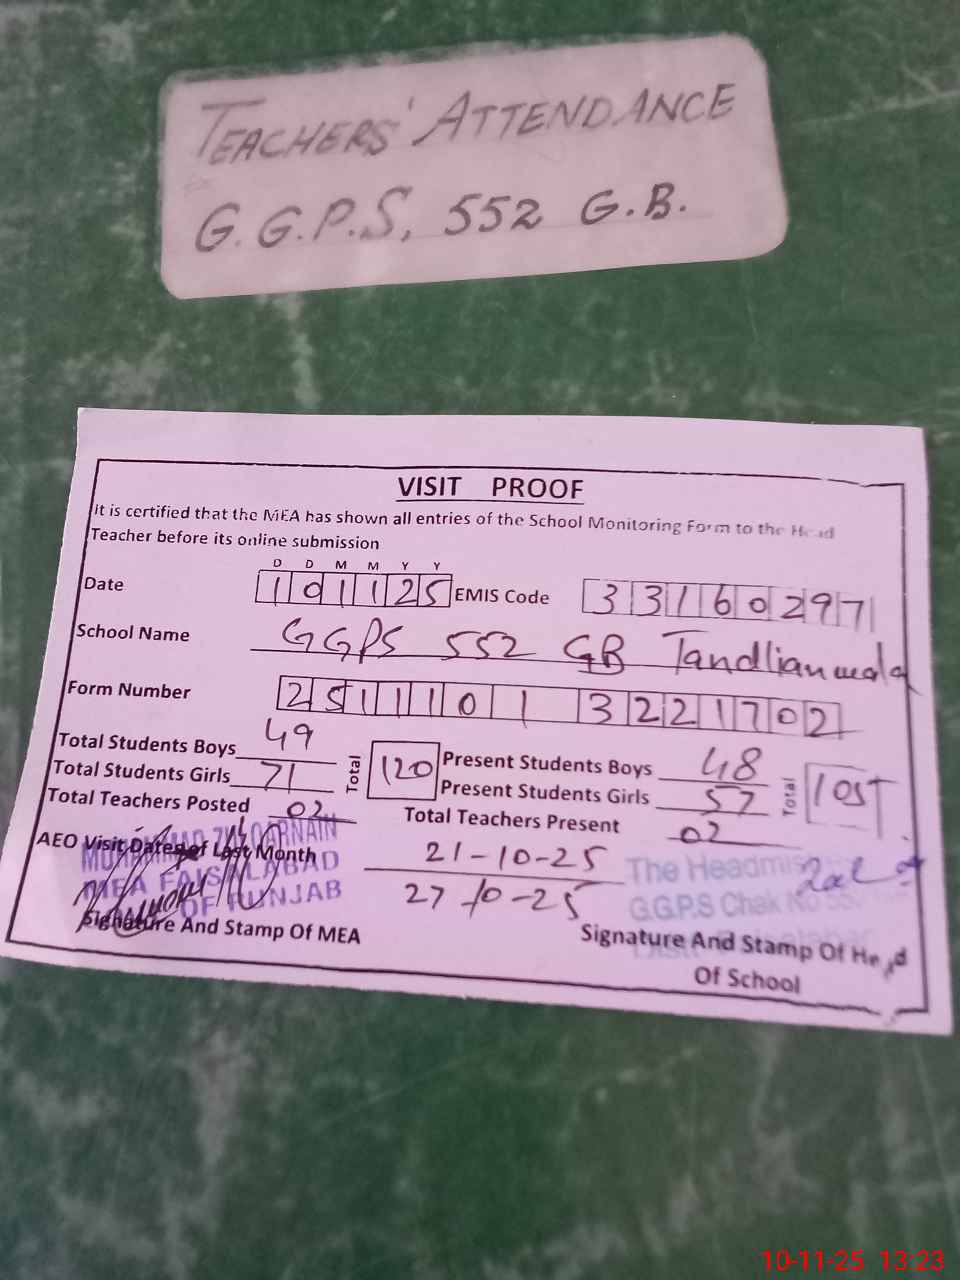 TEACHERS' ATTENDANCE
G.G.P.S, 552 G.B.
VISIT PROOF
It is certified that the MEA has shown all entries of the School Monitoring Form to the Head
Teacher before its online submission
D D M M Y Y
Date 101125 EMIS Code 33160297
School Name GGPS 552 GB Tandlianwala
Form Number 25111101 3221702
Total Students Boys 49 Total 120 Present Students Boys 48 Total 105
Total Students Girls 71 Present Students Girls 57
Total Teachers Posted 02 Total Teachers Present 02
AEO Visit Dates of Last Month 21-10-25
27-10-25
MUHAMMAD ZULQARNAIN
MEA FAISALABAD
OF PUNJAB
The Headmis
G.G.P.S Chak No 55
Signature And Stamp Of MEA
Signature And Stamp Of Head
Of School
10-11-25 13:23